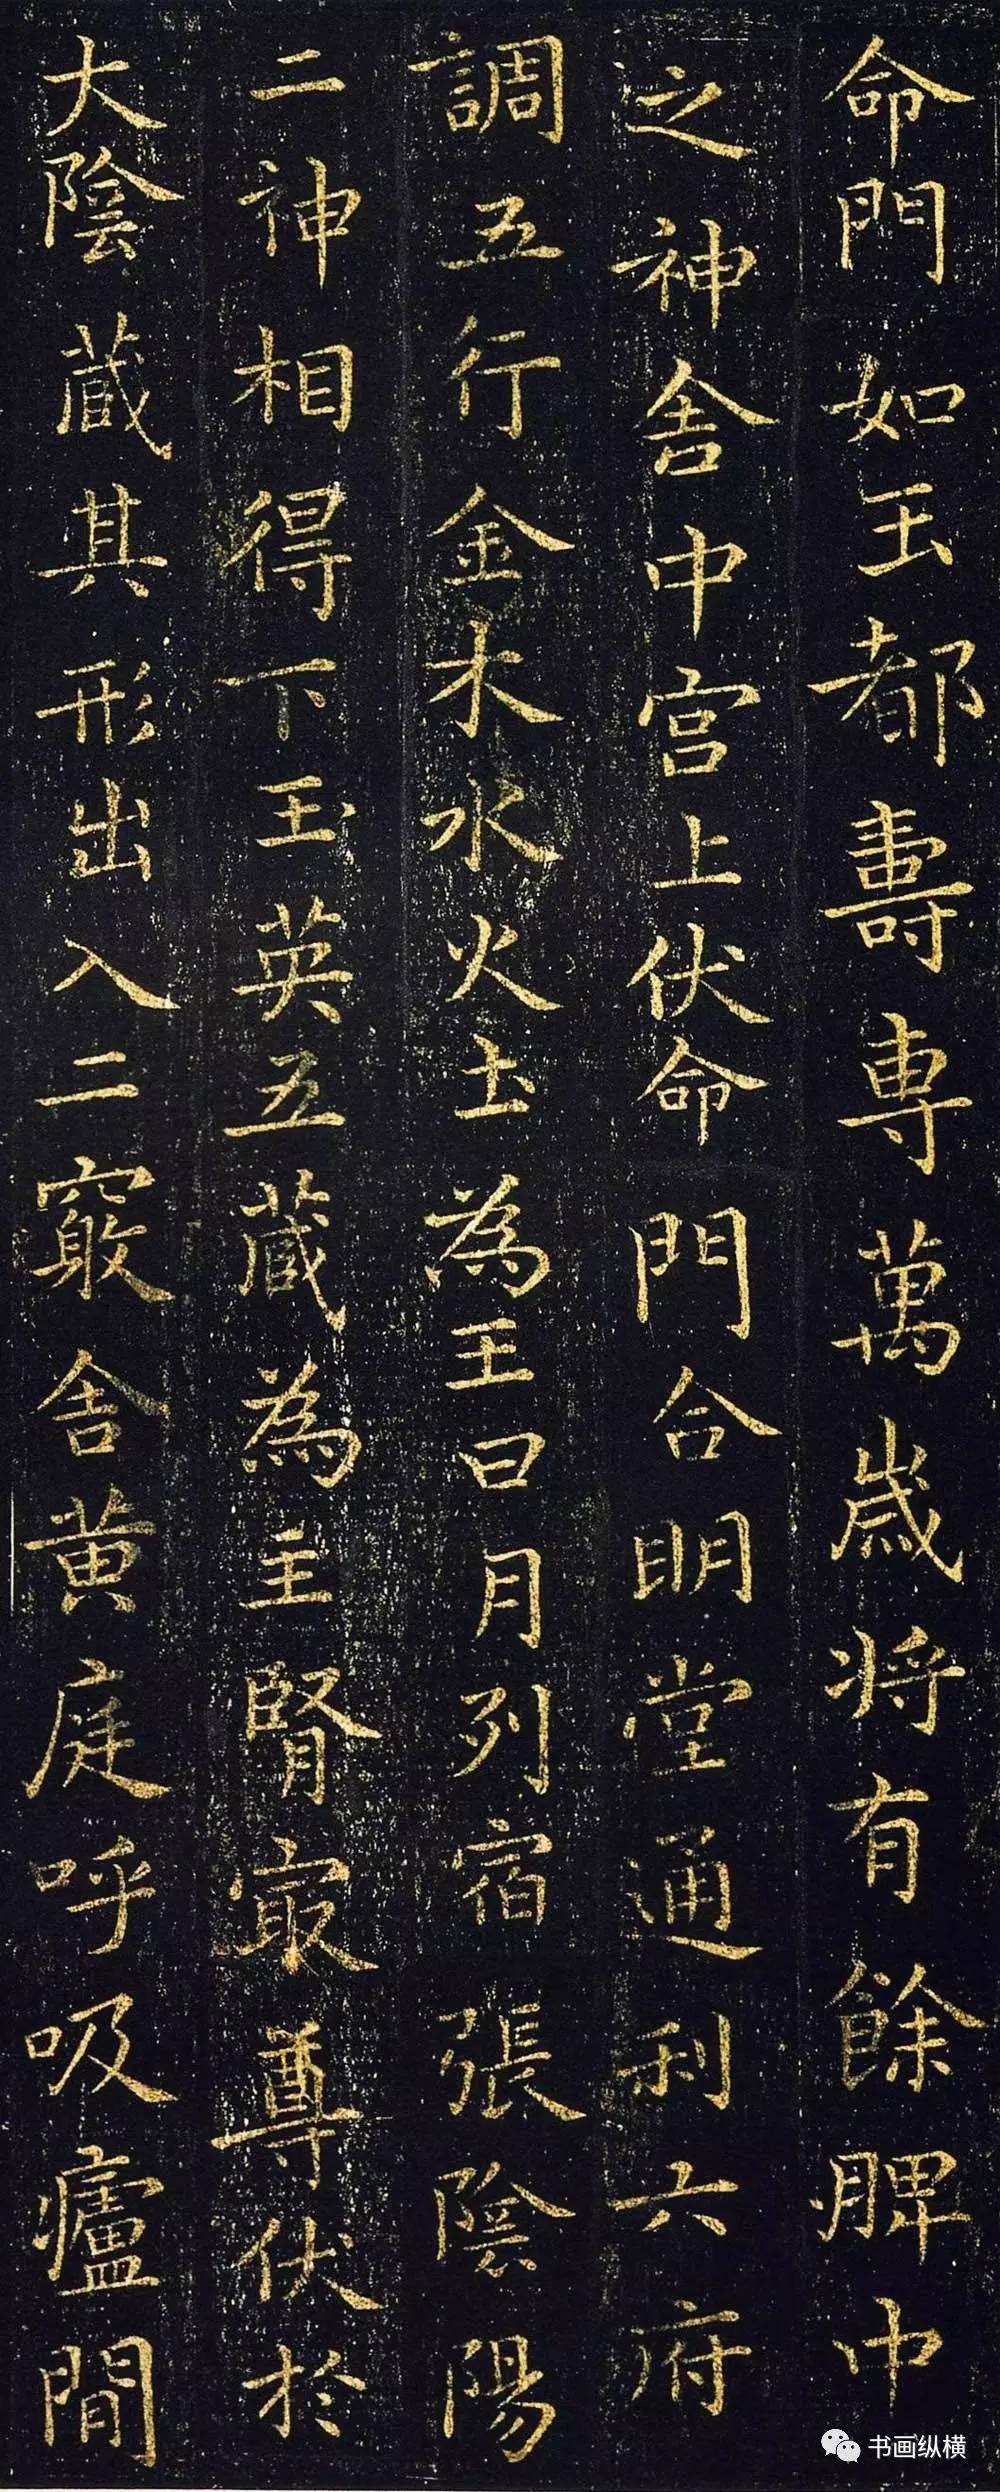 命門如玉都壽專萬歲將有餘脾中
之神舍中宮上伏命門合明堂通利六府
調五行金木水火土為王日月列宿張陰陽
二神相得下玉英五藏為主腎冣尊伏於
大陰藏其形出入二竅舍黃庭呼吸廬間
书画纵横